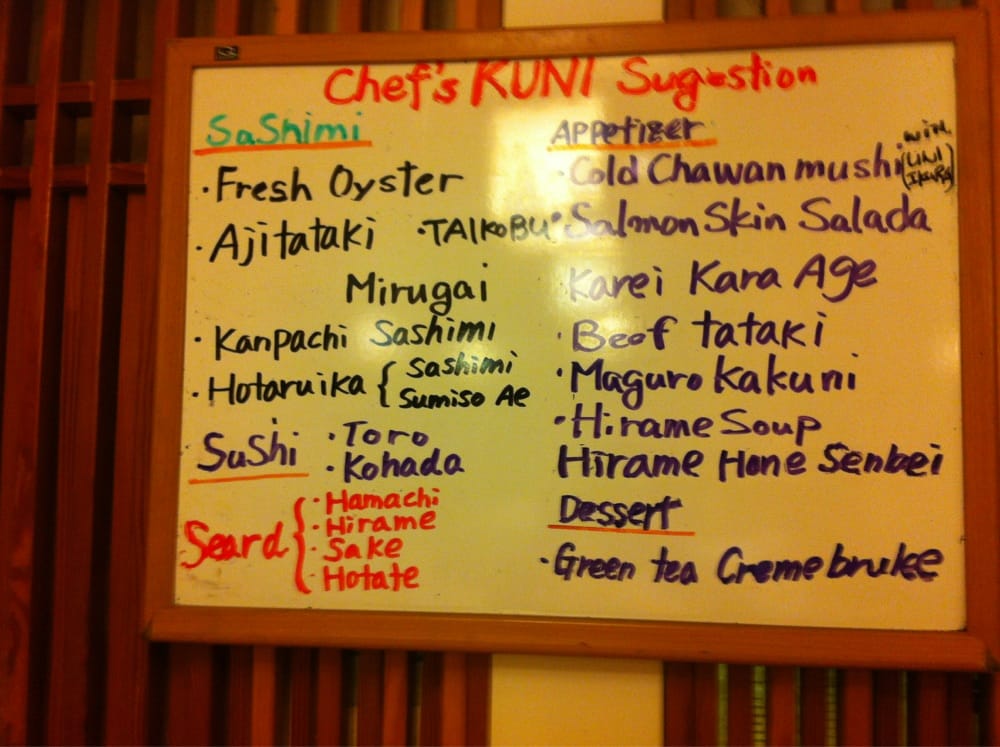 Chef's KUNI Sugestion
Sashimi
· Fresh Oyster
· Ajitataki · TAIKOBU
Mirugai
· Kanpachi Sashimi
· Hotaruika { Sashimi
Sumiso Ae
Sushi · Toro
· Kohada
Seard { · Hamachi
· Hirame
· Sake
· Hotate
Appetizer
· Cold Chawan mushi with (UNI
Ikura)
· Salmon Skin Salada
Karei Kara Age
· Beef tataki
· Maguro Kakuni
· Hirame Soup
Hirame Hone Senbei
Dessert
· Green tea Creme brulee